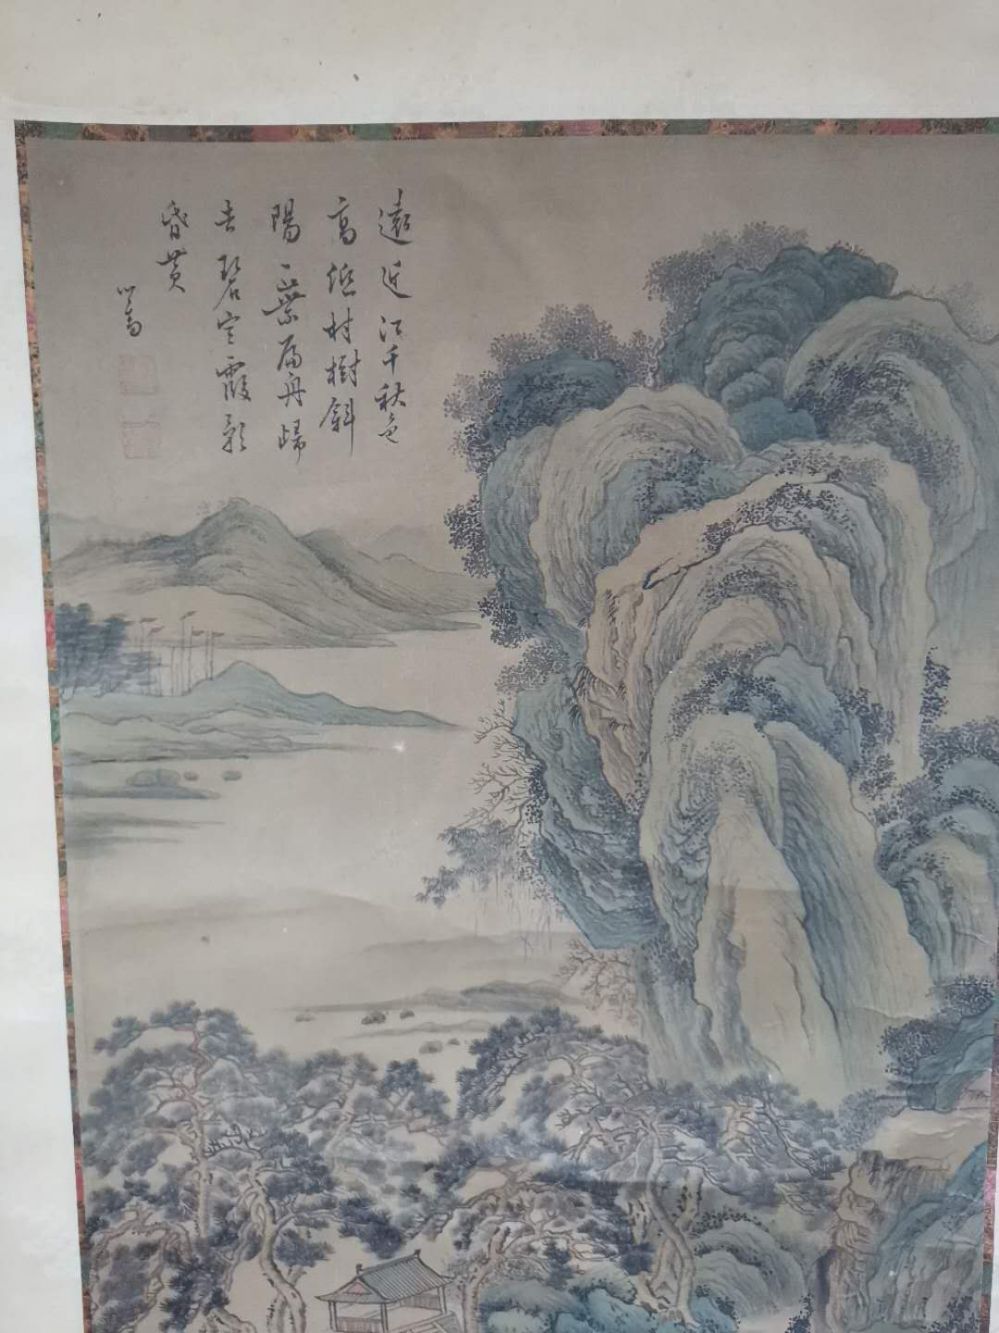 遠近江干秋色
高低村樹斜
陽一葉扁舟歸
去碧空霞影
昏黄
心畬